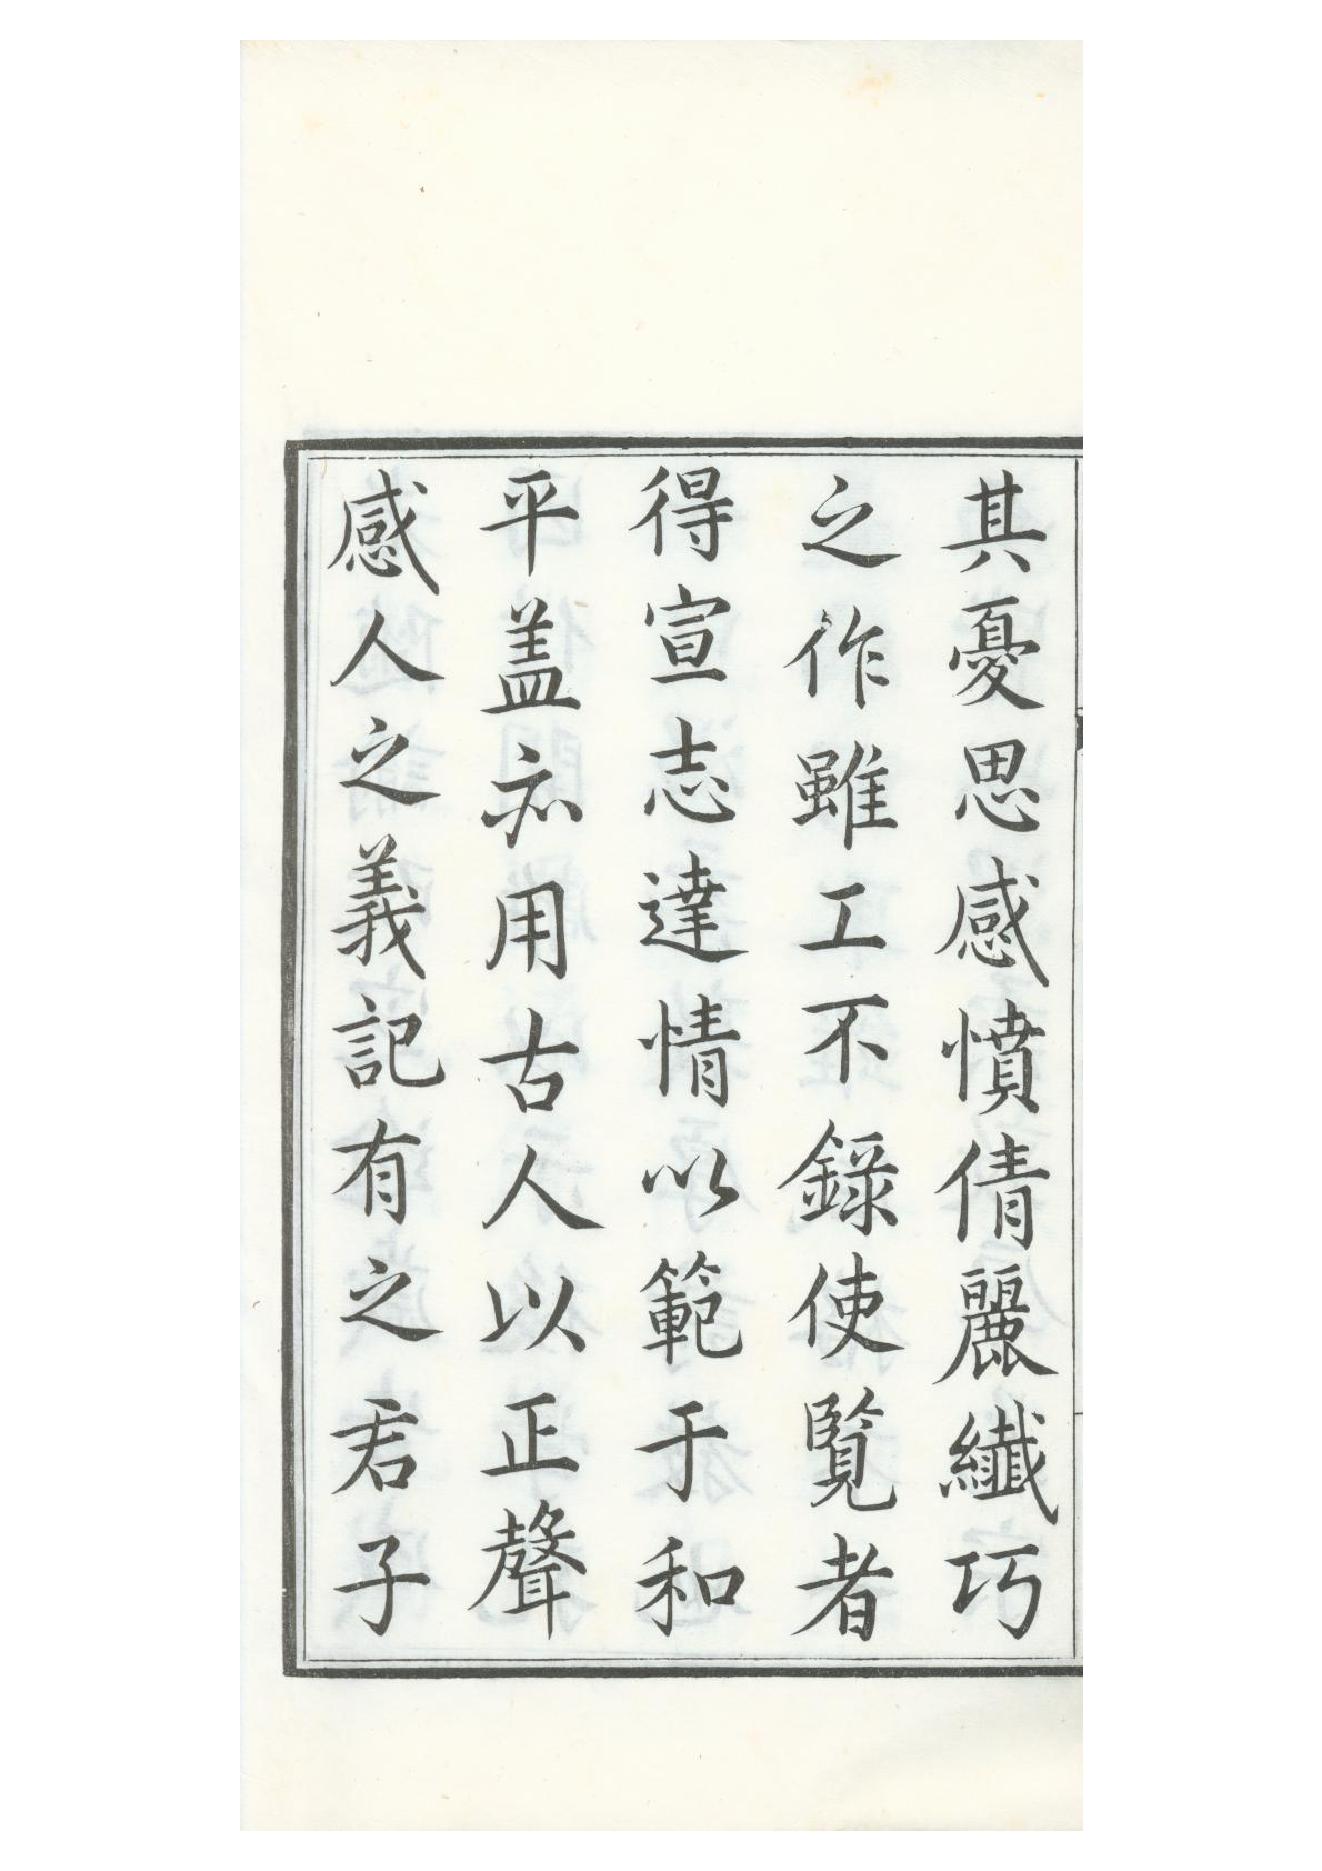 其憂思感憤倩麗纖巧
之作雖工不錄使覽者
得宣志達情以範于和
平盖亦用古人以正聲
感人之義記有之君子